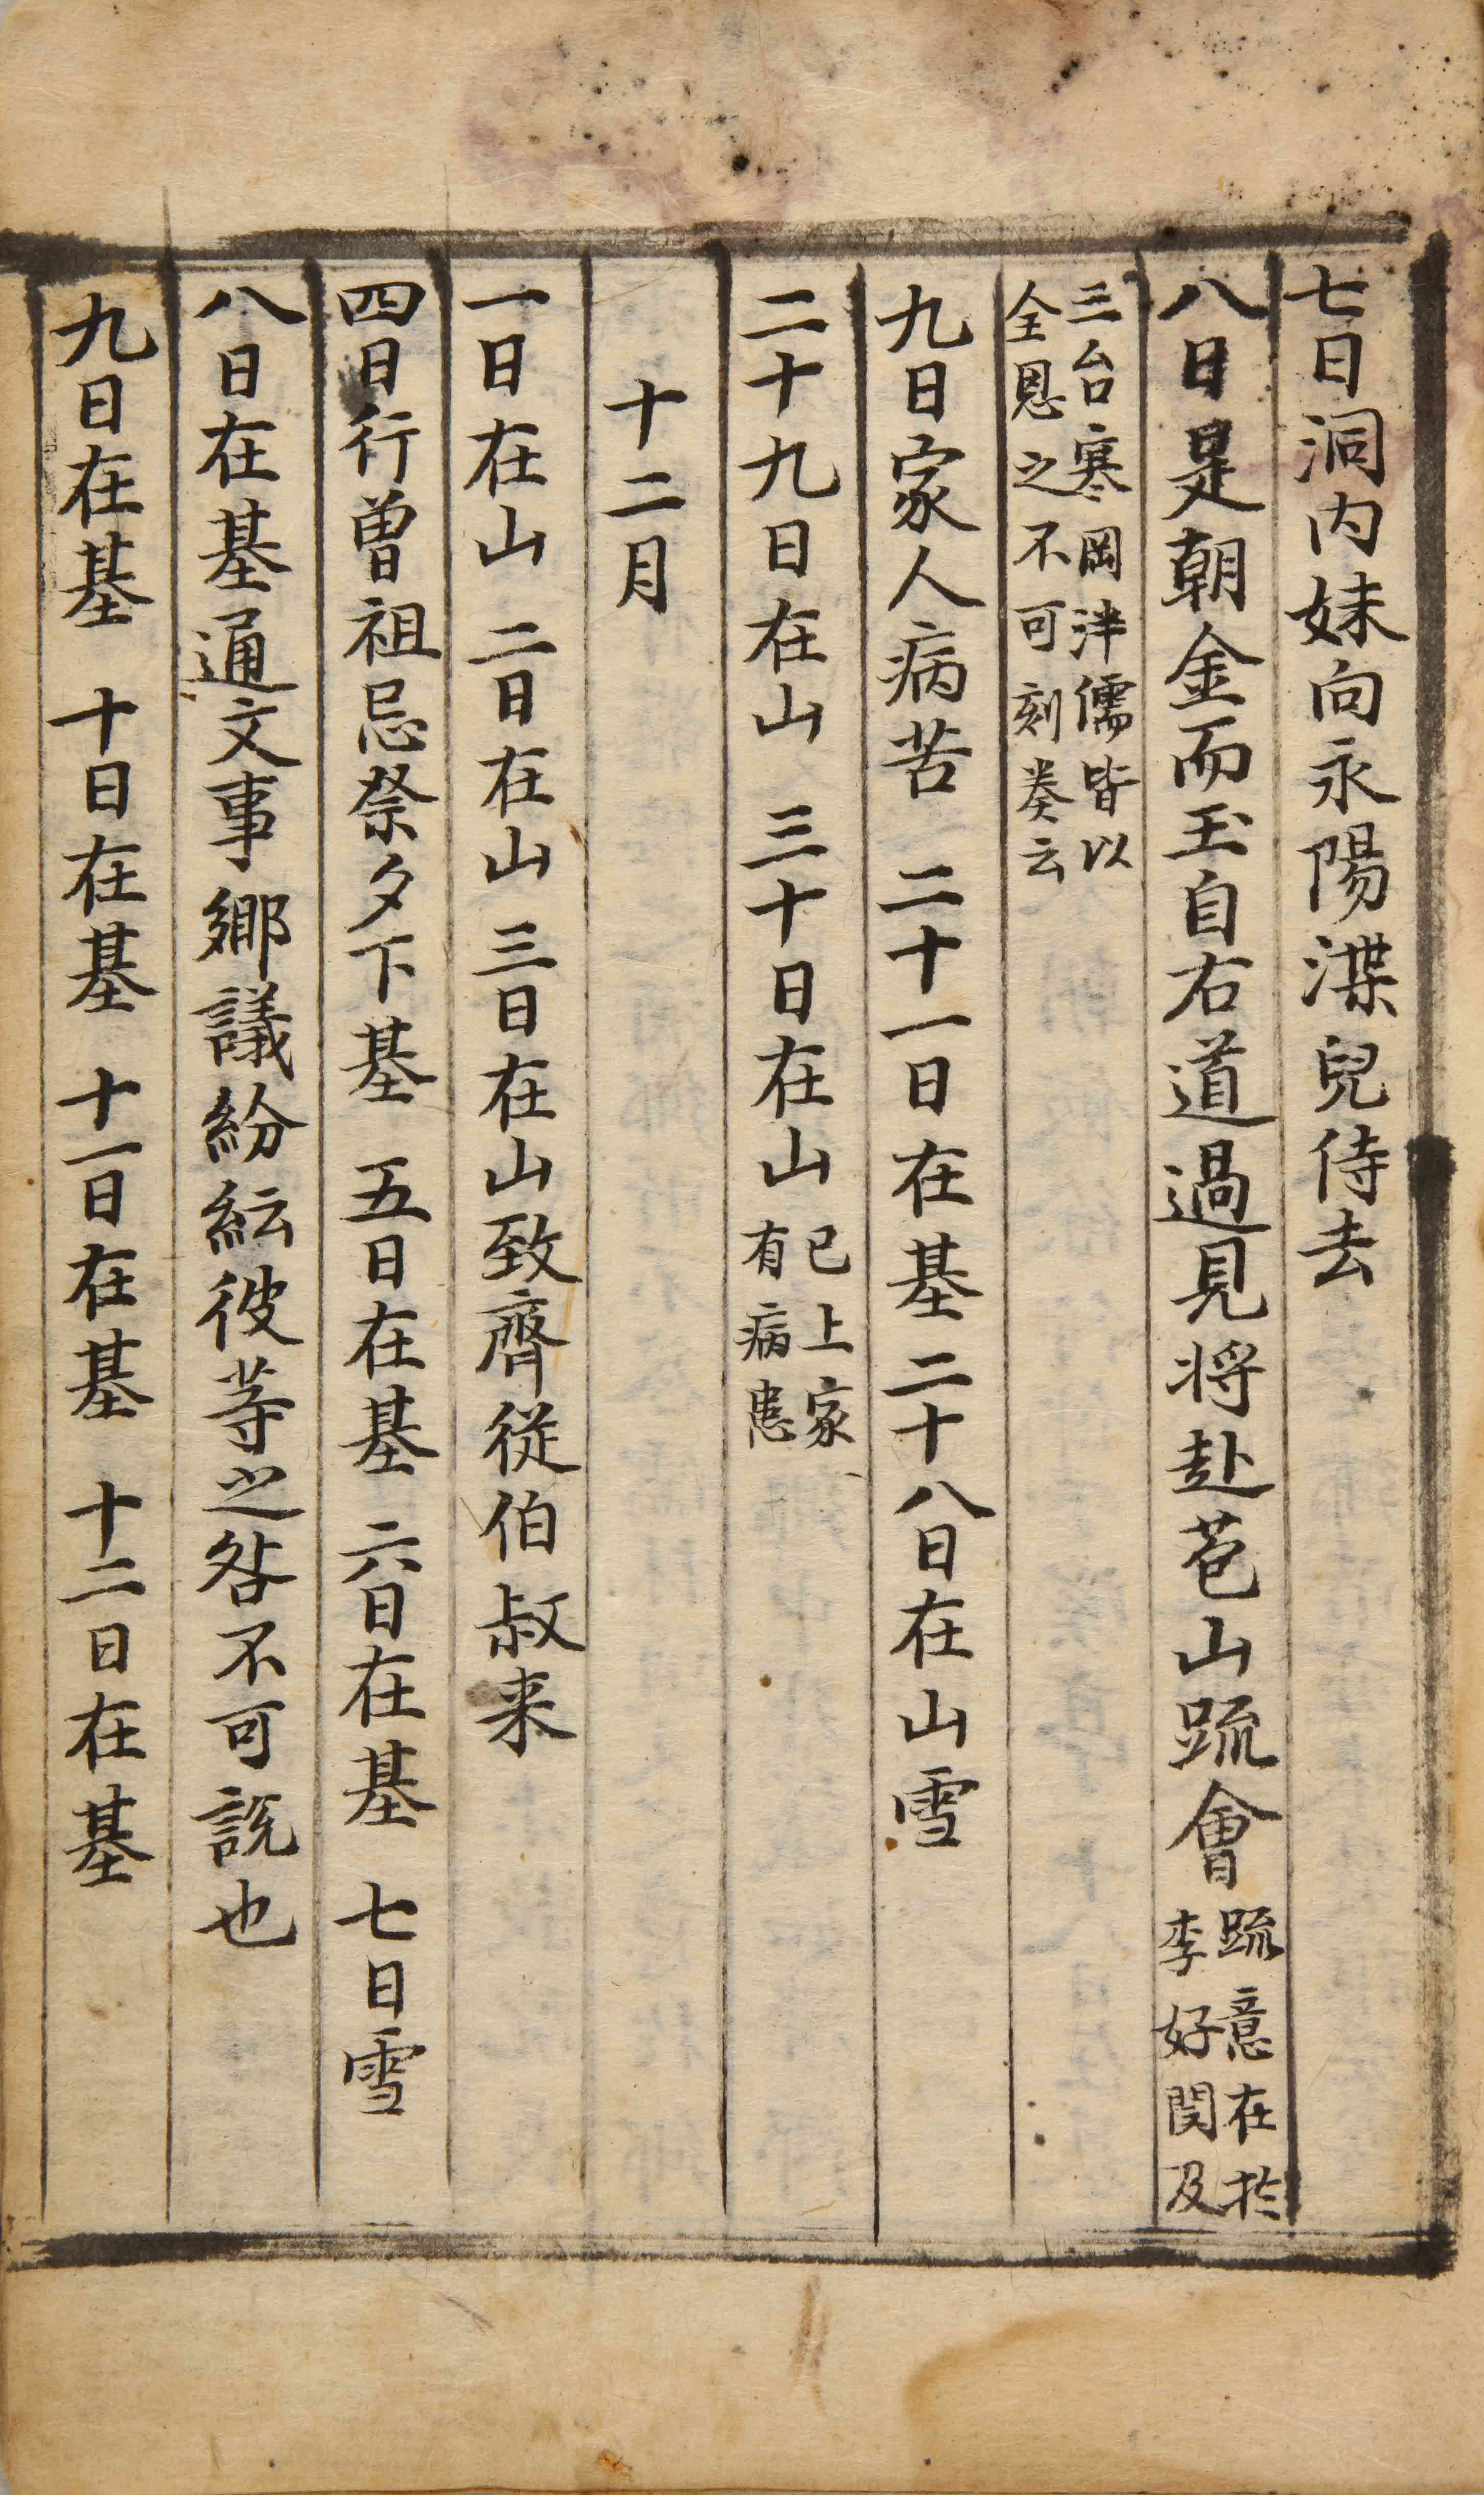 七日洞内妹向永陽渫兒侍去
八日是朝金而玉自右道過見將赴苞山疏會疏意在於
李好閔及
三台寒岡泮儒皆以
全恩之不可刻奏云
九日家人病苦 二十一日在基二十八日在山雪
二十九日在山 三十日在山已上家
有病患
十二月
一日在山 二日在山 三日在山致齊從伯叔来
四日行曽祖忌祭夕下基 五日在基 六日在基 七日雪
八日在基通文事鄉議紛紜彼等之咎不可説也
九日在基 十日在基 十一日在基 十二日在基